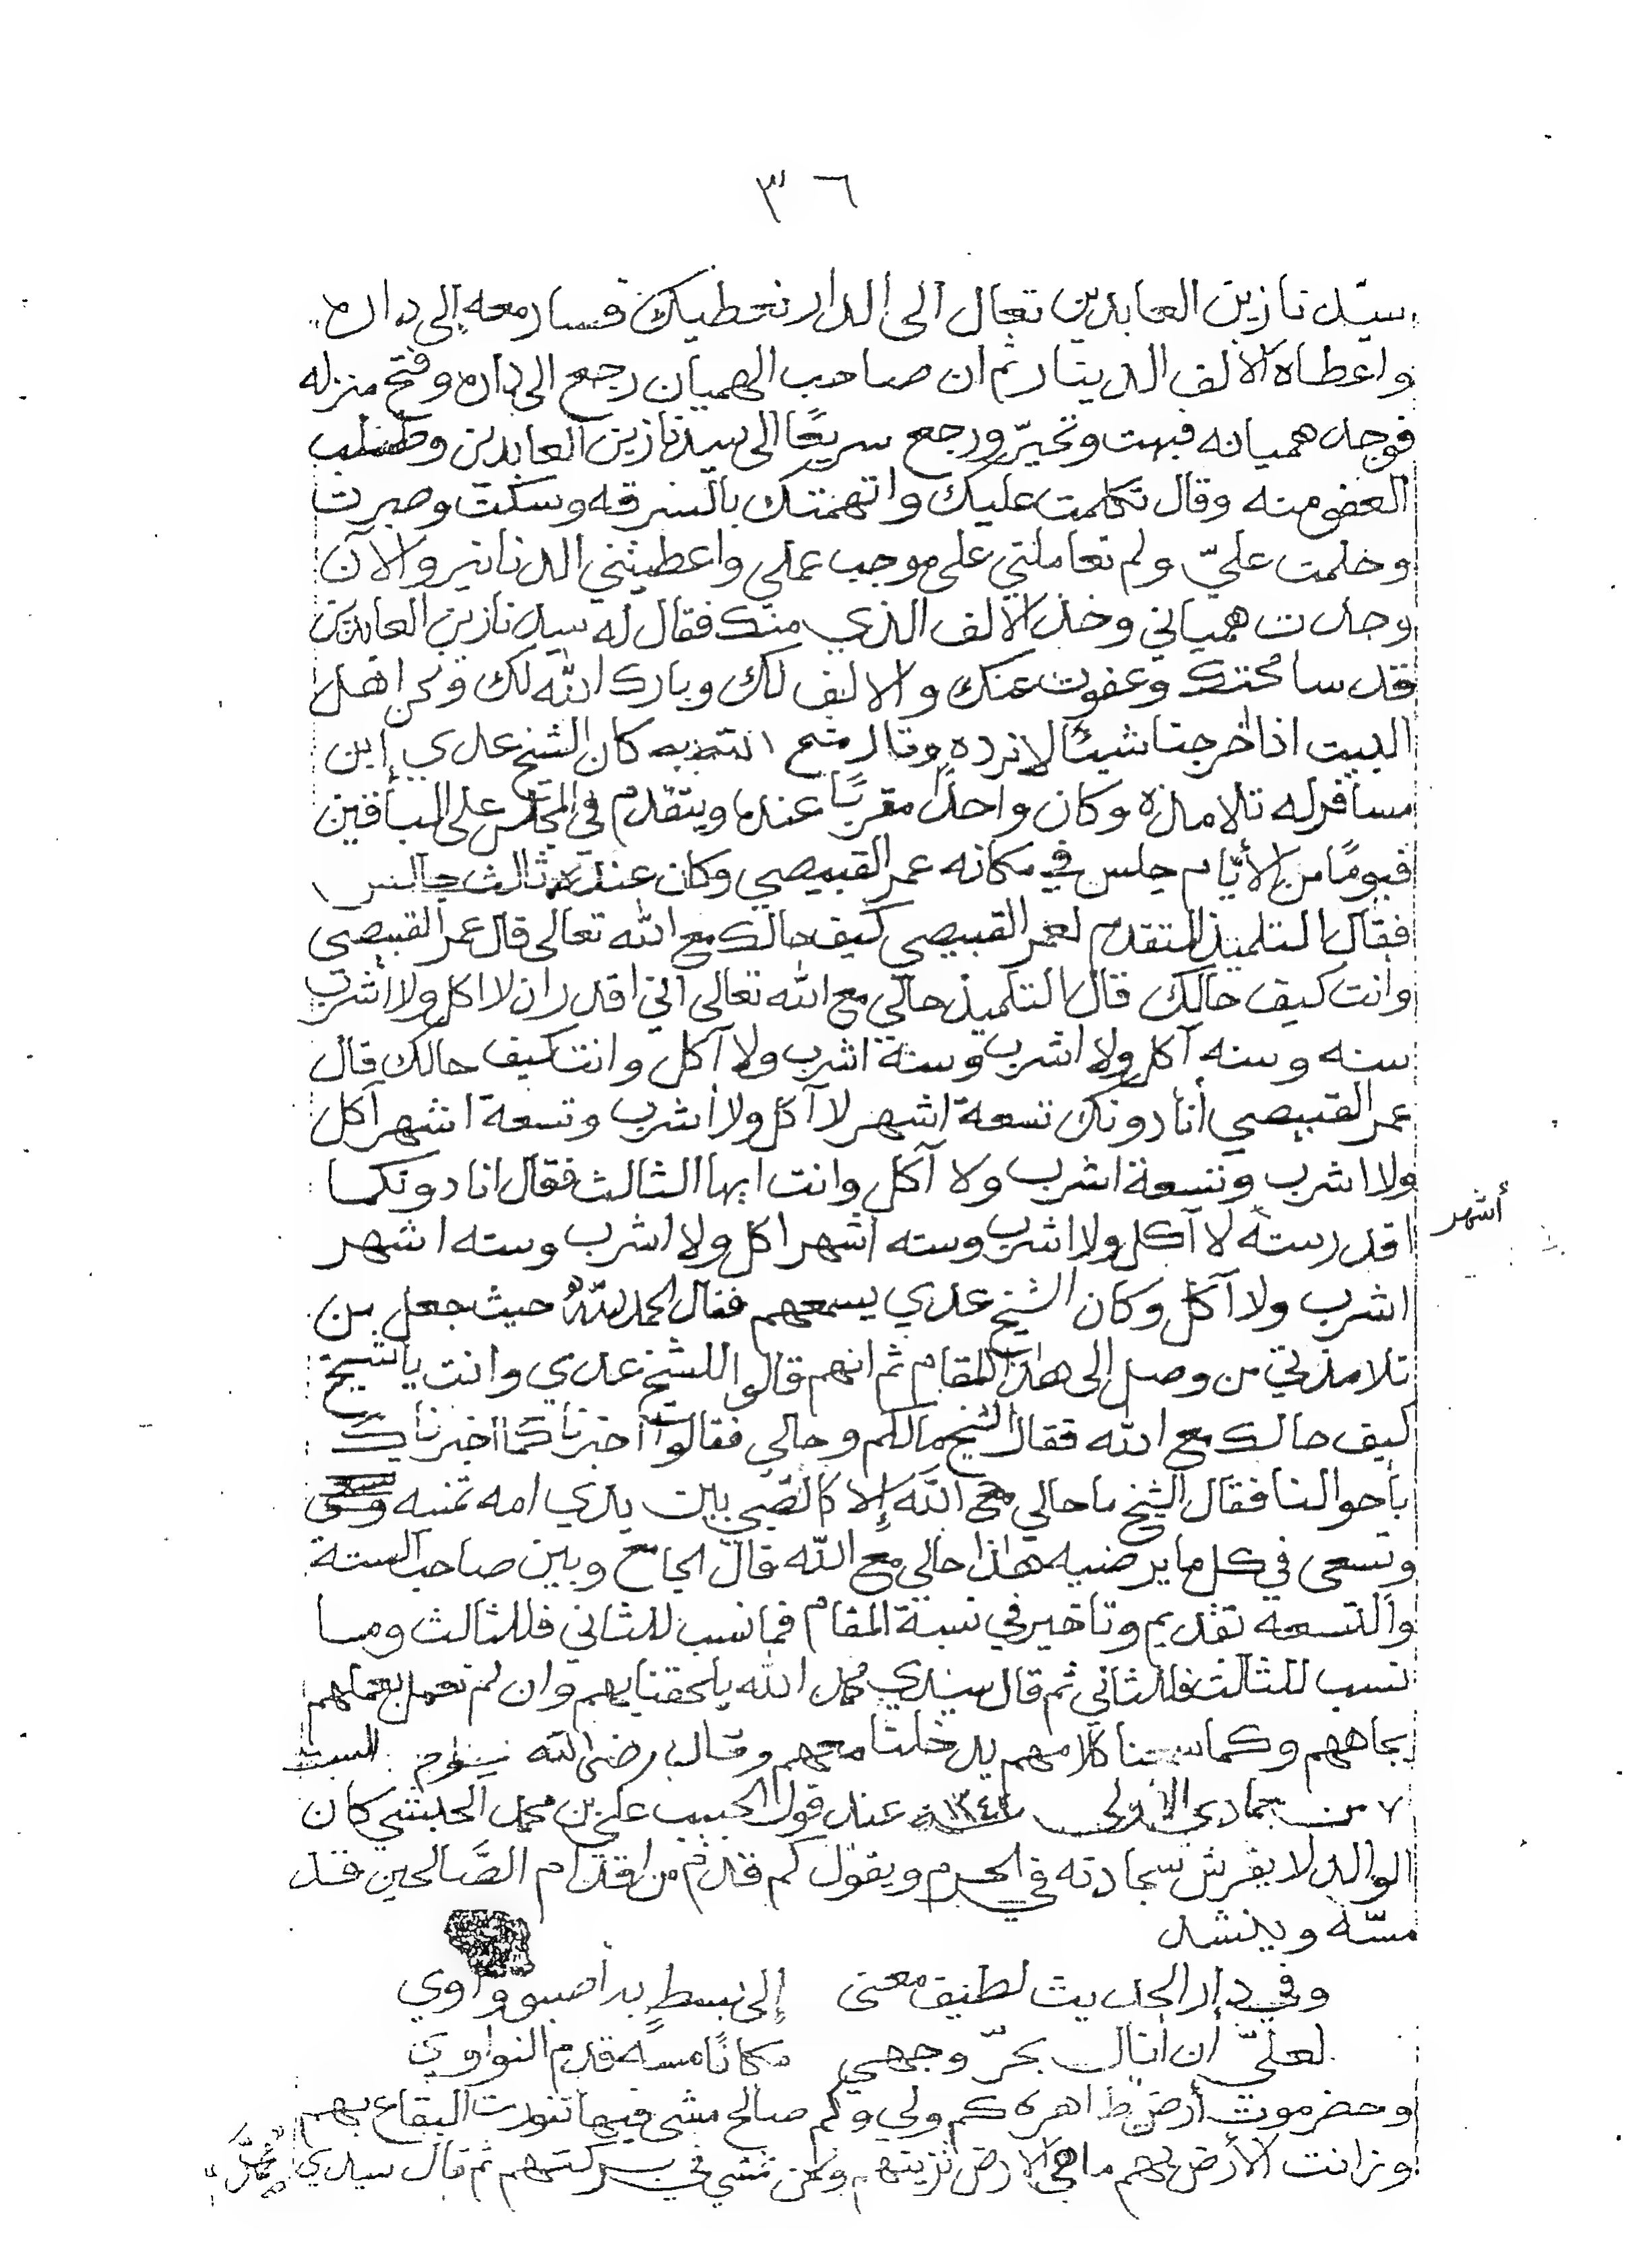 ٣٦
سيدنا زين العابدين تعال الى الدار نعطيك فسار معه إلى داره
واعطاه الالف الدينار ثم ان صاحب الهميان رجع الى داره وفتح منزله
فوجد هميانه فبهت وتحيّر ورجع سريعًا الى سيدنا زين العابدين وطلب
العفو منه وقال تكلمت عليك واتهمتك بالسرقه وسكت وصبرت
وحلمت عليّ ولم تعاملني على موجب عملي واعطيتني الدنانير والآن
وجدت همياني وخذ الالف الذي منك فقال له سيدنا زين العابدين
قد سامحتك وعفوت عنك والالف لك وبارك الله لك ونحن اهل
البيت اذا أخرجنا شيئًا لا نرده وقال متع الله به كان الشيخ عدي إبن
مسافر له تلامذه وكان واحدًا مقربًا عنده ويتقدم في المجلس على الباقين
فيومًا من الأيّام جلس في مكانه عمر القبيصي وكان عنده ثالث جالس
فقال التلميذ المتقدم لعمر القبيصي كيف حالك مع الله تعالى قال عمر القبيصي
وانت كيف حالك قال التلميذ حالي مع الله تعالى اني اقدر ان لا اكل ولا أشرب
سنه وسنه آكل ولا اشرب وسنة اشرب ولا آكل وانت كيف حالك قال
عمر القبيصي أنا دونك تسعة اشهر لا آكل ولا أشرب وتسعة اشهر آكل
ولا اشرب وتسعة اشرب ولا آكل وانت ايها الثالث فقال انا دونكما
اقدر ستة لا آكل ولا اشرب وسته أشهر اكل ولا اشرب وسته اشهر
أشهر
اشرب ولا آكل وكان الشيخ عدي يسمعهم فقال الحمد لله حيث جعل من
تلامذتي من وصل إلى هذا المقام ثم انهم قالوا للشيخ عدي وانت يا شيخ
كيف حالك مع الله فقال الشيخ مالكم وحالي فقالوا أخبرنا كما اخبرناك
بأحوالنا فقال الشيخ ما حالي مع الله إلا كالصبي بين يدي امه تمنيه
وتسعى في كل ما يرضيه هذا حالي مع الله قال الجامع وبين صاحب الستة
والتسعه تقديم وتاخير في نسبة المقام فما نسب للثاني فللثالث وما
نسب للثالث فللثاني ثم قال سيدي محمد الله يلحقنا بهم وان لم نعمل بعملهم
بجاههم وكما سمعنا كلامهم يدخلنا معهم وقال رضي الله يوم السبت
٧ من جمادي الاولى عند قول الحبيب علي بن محمد الحبشي كان
الوالد لا يفرش سجادته في الحرم ويقول كم قدم من اقدام الصَّالحين قد
مسّه وينشد
وفي دار الحديث لطيف معنى إلى بسطٍ بها أصبو وآوي
لعليّ أن انال بحرّ وجهي مكانًا مسه قدم النواوي
وحضرموت أرض طاهره كم ولي وكم صالح مشى فيها تنورت البقاع بهم
وزانت الأرض بهم ما هي الارض تزينهم ونحن نمشي في بركتهم ثم قال سيدي محمَّد